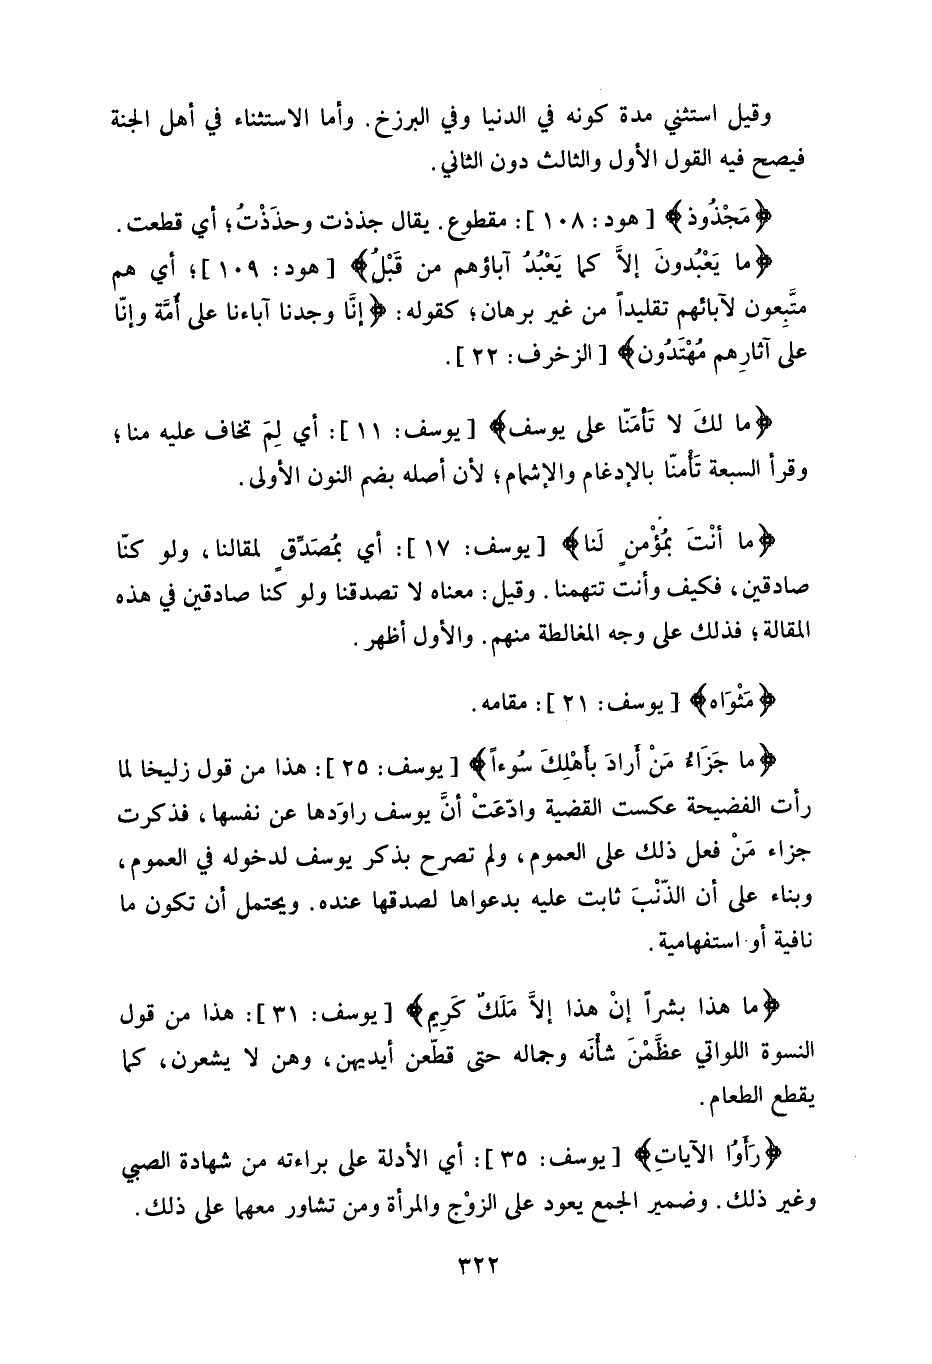 وقيل استثني مدة كونه في الدنيا وفي البرزخ. وأما الاستثناء في أهل الجنة
فيصح فيه القول الأول والثالث دون الثاني.
﴿مَجْذُوذ﴾ [هود: ١٠٨]: مقطوع. يقال جذذت وحذَذْتُ؛ أي قطعت.
﴿ما يَعْبُدونَ إلاَّ كما يَعْبُدُ آباؤهم من قَبْلُ﴾ [هود: ١٠٩]؛ أي هم
متَّبِعون لآبائهم تقليداً من غير برهان؛ كقوله: ﴿إنَّا وجدنا آباءنا على أُمَّة وإنّا
على آثارِهم مُهْتَدُون﴾ [الزخرف: ٢٢].
﴿ما لكَ لا تَأمَنّا على يوسف﴾ [يوسف: ١١]: أي لِمَ تخاف عليه منا؛
وقرأ السبعة تَأْمنّا بالإدغام والإشمام؛ لأن أصله بضم النون الأولى.
﴿ما أنْتَ بمُؤْمنٍ لَنا﴾ [يوسف: ١٧]: أي بمُصَدِّقٍ لمقالنا، ولو كنّا
صادقين، فكيف وأنت تتهمنا. وقيل: معناه لا تصدقنا ولو كنا صادقين في هذه
المقالة؛ فذلك على وجه المغالطة منهم. والأول أظهر.
﴿مَثْوَاه﴾ [يوسف: ٢١]: مقامه.
﴿ما جَزَاءُ مَنْ أَرادَ بأَهْلِكَ سُوءاً﴾ [يوسف: ٢٥]: هذا من قول زليخا لما
رأت الفضيحة عكست القضية وادّعَتْ أنَّ يوسف راوَدها عن نفسها، فذكرت
جزاء مَنْ فعل ذلك على العموم، ولم تصرح بذكر يوسف لدخوله في العموم،
وبناء على أن الذّنْبَ ثابت عليه بدعواها لصدقها عنده. ويحتمل أن تكون ما
نافية أو استفهامية.
﴿ما هذا بشراً إنْ هذا إلاَّ مَلَكٌ كَرِيم﴾ [يوسف: ٣١]: هذا من قول
النسوة اللواتي عظَّمْنَ شأْنَه وجماله حتى قطّعن أيديهن، وهن لا يشعرن، كما
يقطع الطعام.
﴿رَأَوُا الآياتِ﴾ [يوسف: ٣٥]: أي الأدلة على براءته من شهادة الصبي
وغير ذلك. وضمير الجمع يعود على الزوْج والمرأة ومن تشاور معهما على ذلك.
٣٢٢